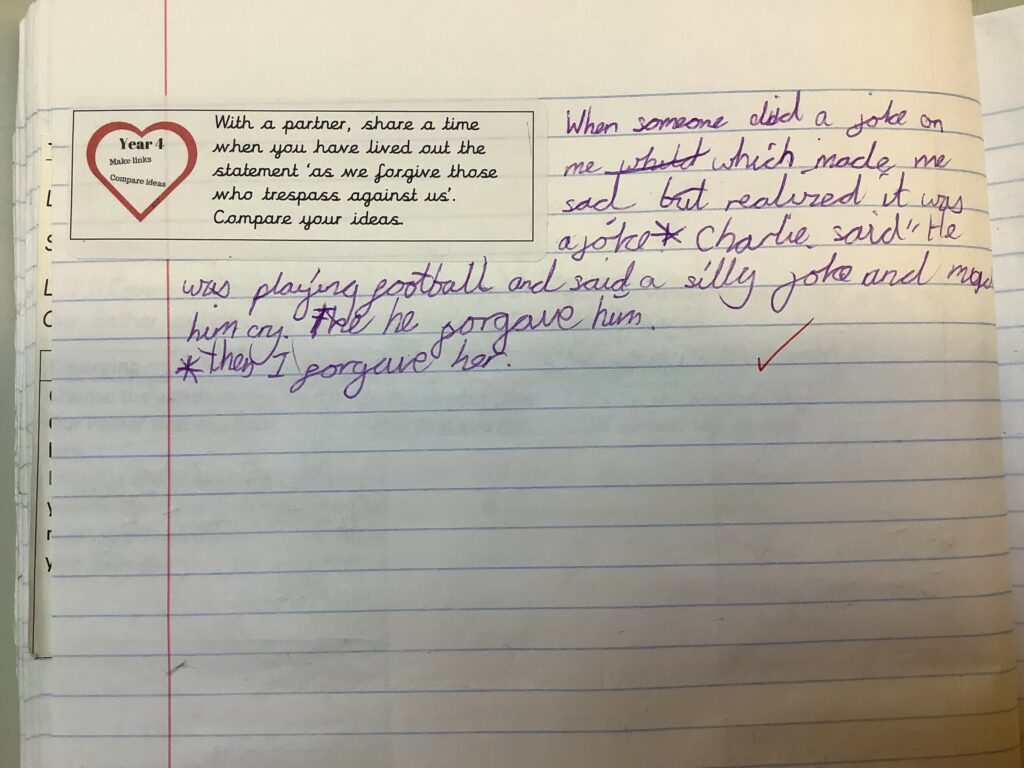 Year 4
Make links
Compare ideas
With a partner, share a time
when you have lived out the
statement 'as we forgive those
who trespass against us'.
Compare your ideas.
When someone did a joke on
me which made me
sad but realized it was
a joke * Charlie said "He
was playing football and said a silly joke and made
him cry. he forgave him.
* then I forgave her.